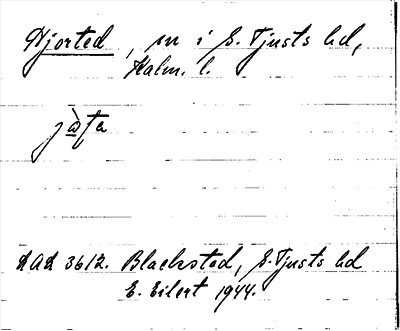 Hjorted, sn i S. Tjusts hd,
Kalm. l.
jàta
DAL 3612. Blackstad, S. Tjusts hd
E. Eilert 1944.